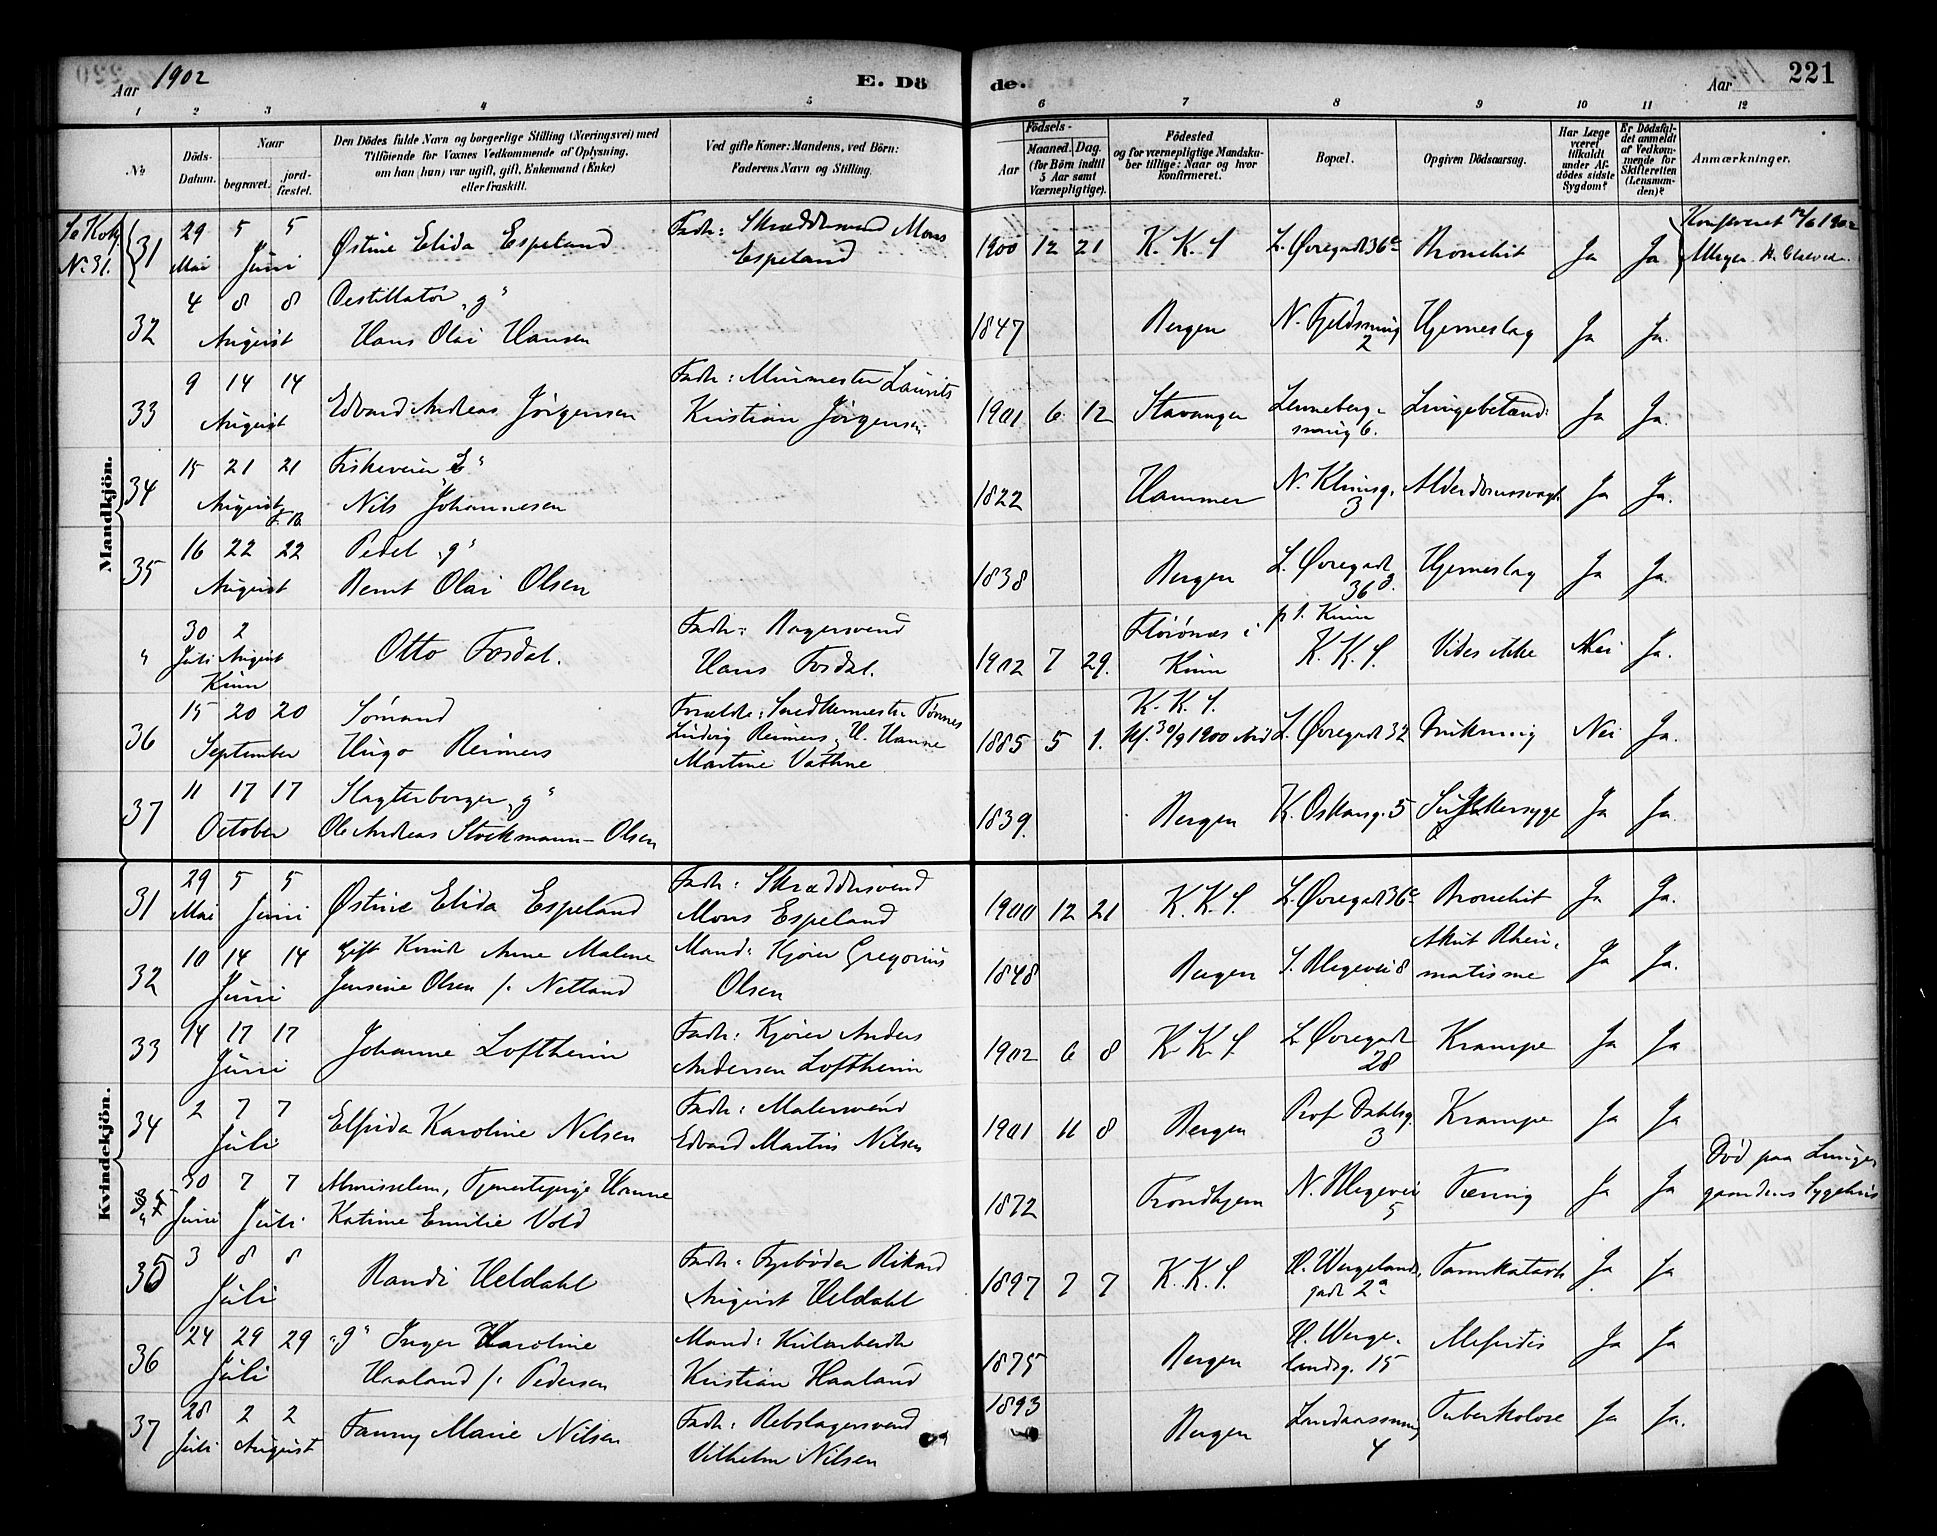 Aar 1902
E. Dö
de.
Aar
221
1 2 3 4 5 6 7 8 9 10 11 12
No
Döds-Datum.
Naar
begravet.
jord-fæstet.
Den Dödes fulde Navn og borgerlige Stilling (Næringsvei) med
Tilföiende for Voxnes Vedkommende af Oplysning,
om han (hun) var ugift, gift, Enkemand (Enke)
eller fraskilt.
Ved gifte Koner: Mandens, ved Börn:
Faderens Navn og Stilling.
Födsels-
Aar
Maaned. Dag.
(for Börn indtil
5 Aar samt
Værnepligtige).
Födested
og for værnepligtige Mandska-
ber tillige: Naar og hvor
konfirmeret.
Bopæl.
Opgiven Dödsaarsag.
Har Læge
været
tilkaldt
under Af-
dödes sidste
Sygdom?
Er Dödsfal-
det anmeldt
af Vedkom-
mende for
Skifteretten
(Lensman-
den)?
Anmærkninger.
Mandkjön.
No. 31.
31 29 5 5 Østine Elida Espeland Fadr: Skræddersvend Mons
Mai Juni Espeland
1900 12 21 K. K. S. L. Øvregade 36c Bronchit Ja Ja
32 4 8 8 Destillatör "g"
August Hans Olai Hansen
1847 Bergen N. Fjeldsmug 2 Hjerneslag Ja Ja.
33 9 14 14 Edvard Andreas Jörgensen Fadr: Murmester Laurits
August Kristian Jörgensen
1901 6 12 Stavanger Lennebergs-
smug 6. Lungebetænd: Ja Ja.
34 15 21 21 Fiskeveier E"
August Nils Johannesen
1822 Hammer N. Klinsg. 3 Alderdomssvagh. Ja Ja.
35 16 22 22 Pedel "g"
August Bernt Olai Olsen
1838 Bergen L. Øvregade
36 Hjerneslag Ja Ja.
" 30 2 Otto Fosdal. Fadr: Bagersvend
Juli August Hans Fosdal.
Kinn
1902 7 29. Florönæs i
Kinn p. t. Kinn
K. K. S. Vides ikke Nei Ja.
36 15 20 20 Sömand Forældre: Snedkermester Tönnes
September Hugo Reimers Ludvig Reimers, H. Hanne
Martine Vathne
1885 5 1. K. K. S.
Kf. 30/9 1900 L. Øvregade 32 Drukning Nei Ja.
37 11 17 17 Slagterborger "g"
October Ole Andreas Stockmann-Olsen
1839. Bergen K. Oskarsg. 5 Sukkersyge Ja Ja.
Kvindekjön.
31 29 5 5 Østine Elida Espeland Fadr: Skræddersvend
Mai Juni Mons Espeland
1900 12 21 K. K. S. L. Øvregade 36c Bronchit Ja Ja.
32 10 14 14 Gift Kvinde Anne Malene Mand: Kjörer Gregorius
Juni Jensine Olsen f. Netland Olsen
1848 Bergen S. Blegevei 8 Akut Rheu-
matisme Ja Ja.
33 14 17 17 Johanne Loftheim Fadr: Kjörer Anders
Juni Andersen Loftheim
1902 6 8 K. K. S. L. Øvregade
28 Krampe Ja Ja
34 2 7 7 Elfrida Karoline Nilsen Fadr: Malersvend
Juli Edvard Martin Nilsen
1901 11 8 Bergen Prof. Dahlsg.
3 Krampe Ja Ja
30 7 7 Tjenestepige Hanne
Juni Juli Katrine Emilie Vold
1872 Trondhjem N. Blegevei
5 Tæring Ja Ja Död paa Lunge-
gaardens Sygehus
35 3 8 8 Randi Heldahl Fadr: Fyrböder Rikard
Juli August Heldahl
1897 7 7 K. K. S. H. Wergelands-
gade 2a Tarmkatarh Ja Ja
36 24 29 29 "g" Inger Karoline Mand: Kularbeider
Juli Haaland f. Pedersen Kristian Haaland
1875 Bergen H. Werge-
landsg. 15 Ja Ja
37 28 2 2 Fanny Marie Nilsen Fadr: Rebslagersvend
Juli August Vilhelm Nilsen
1893 Bergen Landaassmug
4 Tuberkolose Ja Ja.